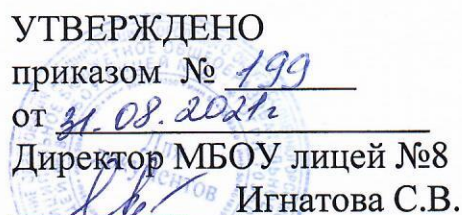 УТВЕРЖДЕНО
приказом № 199
от 31.08.2021г
Директор МБОУ лицей №8
Игнатова С.В.